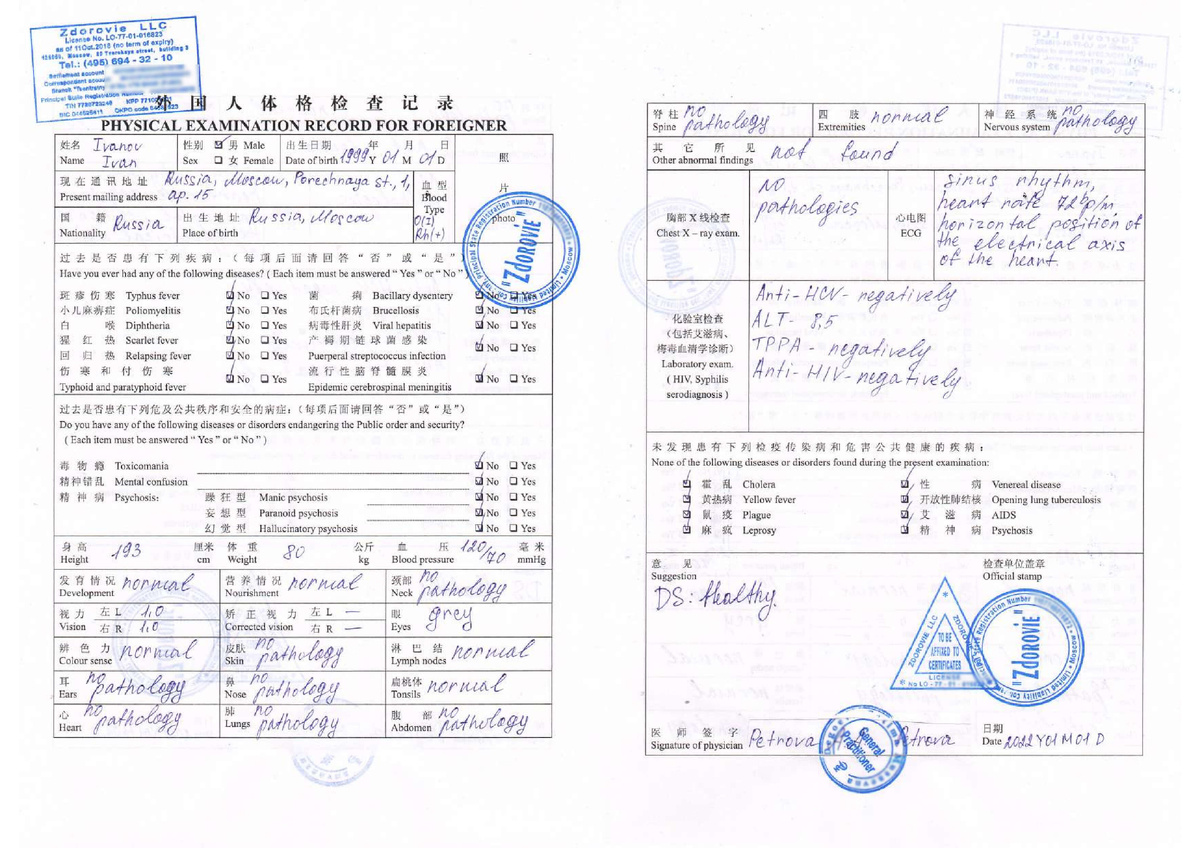 Zdorovie LLC
License No. LO-77-01-016823
as of 11Oct.2018 (no term of expiry)
Tel.: (495) 694 - 32 - 10
Settlement account
Correspondent account
Principal State Registration Number
外 国 人 体 格 检 查 记 录
PHYSICAL EXAMINATION RECORD FOR FOREIGNER
姓名 Name Ivanov Ivan 性别 Sex ☑ 男 Male ☐ 女 Female 出生日期 Date of birth 1999 年 Y 01 月 M 01 日 D
照 片 photo
现在通讯地址 Present mailing address Russia, Moscow, Porechnaya st., 1, ap. 15.
血型 Blood Type O(I) Rh(+)
国 籍 Nationality Russia 出 生 地 址 Place of birth Russia, Moscow
"Zdorovie"
过去是否患有下列疾病：（每项后面请回答“否”或“是”
Have you ever had any of the following diseases? ( Each item must be answered “ Yes ” or “ No ”
斑疹伤寒 Typhus fever ☑ No ☐ Yes 菌 痢 Bacillary dysentery ☑ No ☐ Yes
小儿麻痹症 Poliomyelitis ☑ No ☐ Yes 布氏杆菌病 Brucellosis ☑ No ☐ Yes
白 喉 Diphtheria ☑ No ☐ Yes 病毒性肝炎 Viral hepatitis ☑ No ☐ Yes
猩 红 热 Scarlet fever ☑ No ☐ Yes 产褥期链球菌感染
回 归 热 Relapsing fever ☑ No ☐ Yes Puerperal streptococcus infection ☑ No ☐ Yes
伤 寒 和 付 伤 寒 流行性脑脊髓膜炎
Typhoid and paratyphoid fever ☑ No ☐ Yes Epidemic cerebrospinal meningitis ☑ No ☐ Yes
过去是否患有下列危及公共秩序和安全的病症：（每项后面请回答“否”或“是”）
Do you have any of the following diseases or disorders endangering the Public order and security?
( Each item must be answered “ Yes ” or “ No ” )
毒 物 瘾 Toxicomania ☑ No ☐ Yes
精神错乱 Mental confusion ☑ No ☐ Yes
精 神 病 Psychosis: 躁 狂 型 Manic psychosis ☑ No ☐ Yes
妄 想 型 Paranoid psychosis ☑ No ☐ Yes
幻 觉 型 Hallucinatory psychosis ☑ No ☐ Yes
身 高 Height 193 厘米 cm 体 重 Weight 80 公斤 kg 血 压 Blood pressure 120/70 毫 米 mmHg
发 育 情 况 Development normal 营 养 情 况 Nourishment normal 颈部 Neck no pathology
视 力 Vision 左 L 1,0 右 R 1,0 矫 正 视 力 Corrected vision 左 L — 右 R — 眼 Eyes grey
辨 色 力 Colour sense normal 皮肤 Skin no pathology 淋 巴 结 Lymph nodes normal
耳 Ears no pathology 鼻 Nose no pathology 扁桃体 Tonsils normal
心 Heart no pathology 肺 Lungs no pathology 腹 部 Abdomen no pathology
脊 柱 Spine no pathology 四 肢 Extremities normal 神 经 系 统 Nervous system no pathology
其 它 所 见 Other abnormal findings not found
胸部 X 线检查 Chest X – ray exam. no pathologies
心电图 ECG sinus rhythm, heart rate 72 bp/m horizontal position of the electrical axis of the heart.
化验室检查
（包括艾滋病、
梅毒血清学诊断）
Laboratory exam.
( HIV, Syphilis
serodiagnosis )
Anti-HCV- negatively
ALT- 8,5
TPPA - negatively
Anti-HIV-negatively
未 发 现 患 有 下 列 检 疫 传 染 病 和 危 害 公 共 健 康 的 疾 病 ：
None of the following diseases or disorders found during the present examination:
☑ 霍 乱 Cholera ☑ 性 病 Venereal disease
☑ 黄热病 Yellow fever ☑ 开放性肺结核 Opening lung tuberculosis
☑ 鼠 疫 Plague ☑ 艾 滋 病 AIDS
☑ 麻 疯 Leprosy ☑ 精 神 病 Psychosis
意 见 Suggestion
DS: Healthy.
检查单位盖章 Official stamp
ZDOROVIE LLC
TO BE
AFFIXED TO
CERTIFICATES
LICENSE
"Zdorovie"
医 师 签 字 Signature of physician Petrova Petrova
General Practitioner
日期 Date 2022 Y 01 M 01 D